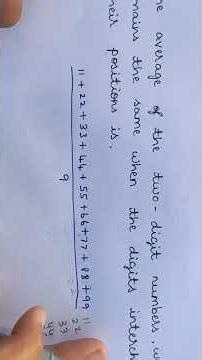 he average of the two-digit numbers, w
mains the same when the digits interch
heir positions is.
11 + 22 + 33 + 44 + 55 + 66 + 77 + 88 + 99
9
11
22
33
44